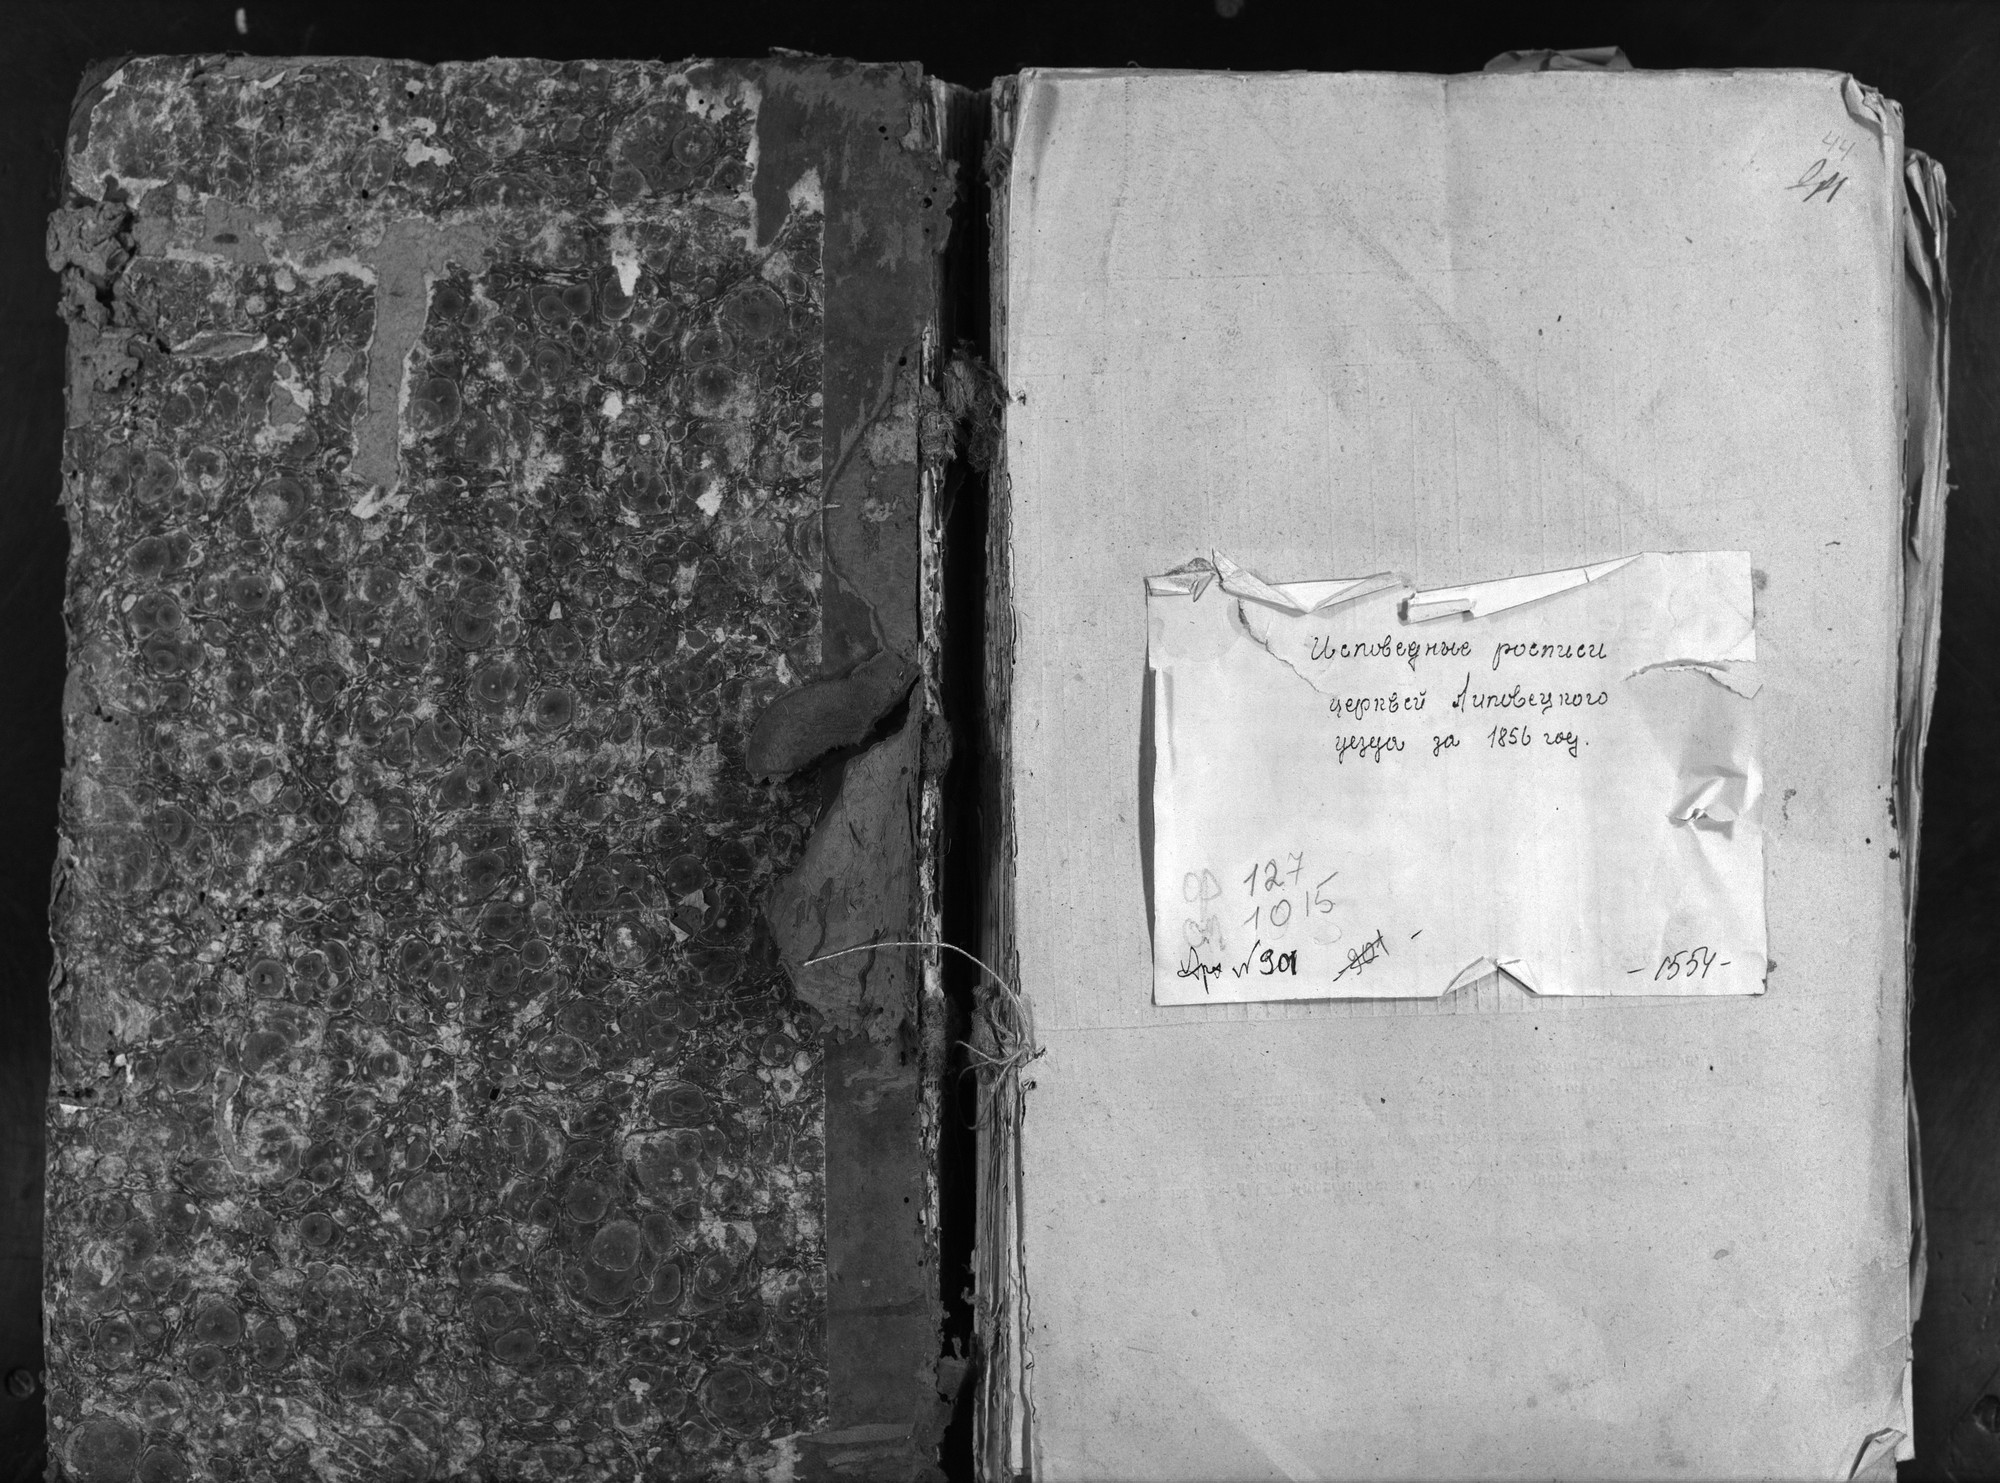 44
Исповедные росписи
церквей Липовецкого
уезда за 1856 год.
127
1015
№ 901
901
-1554-